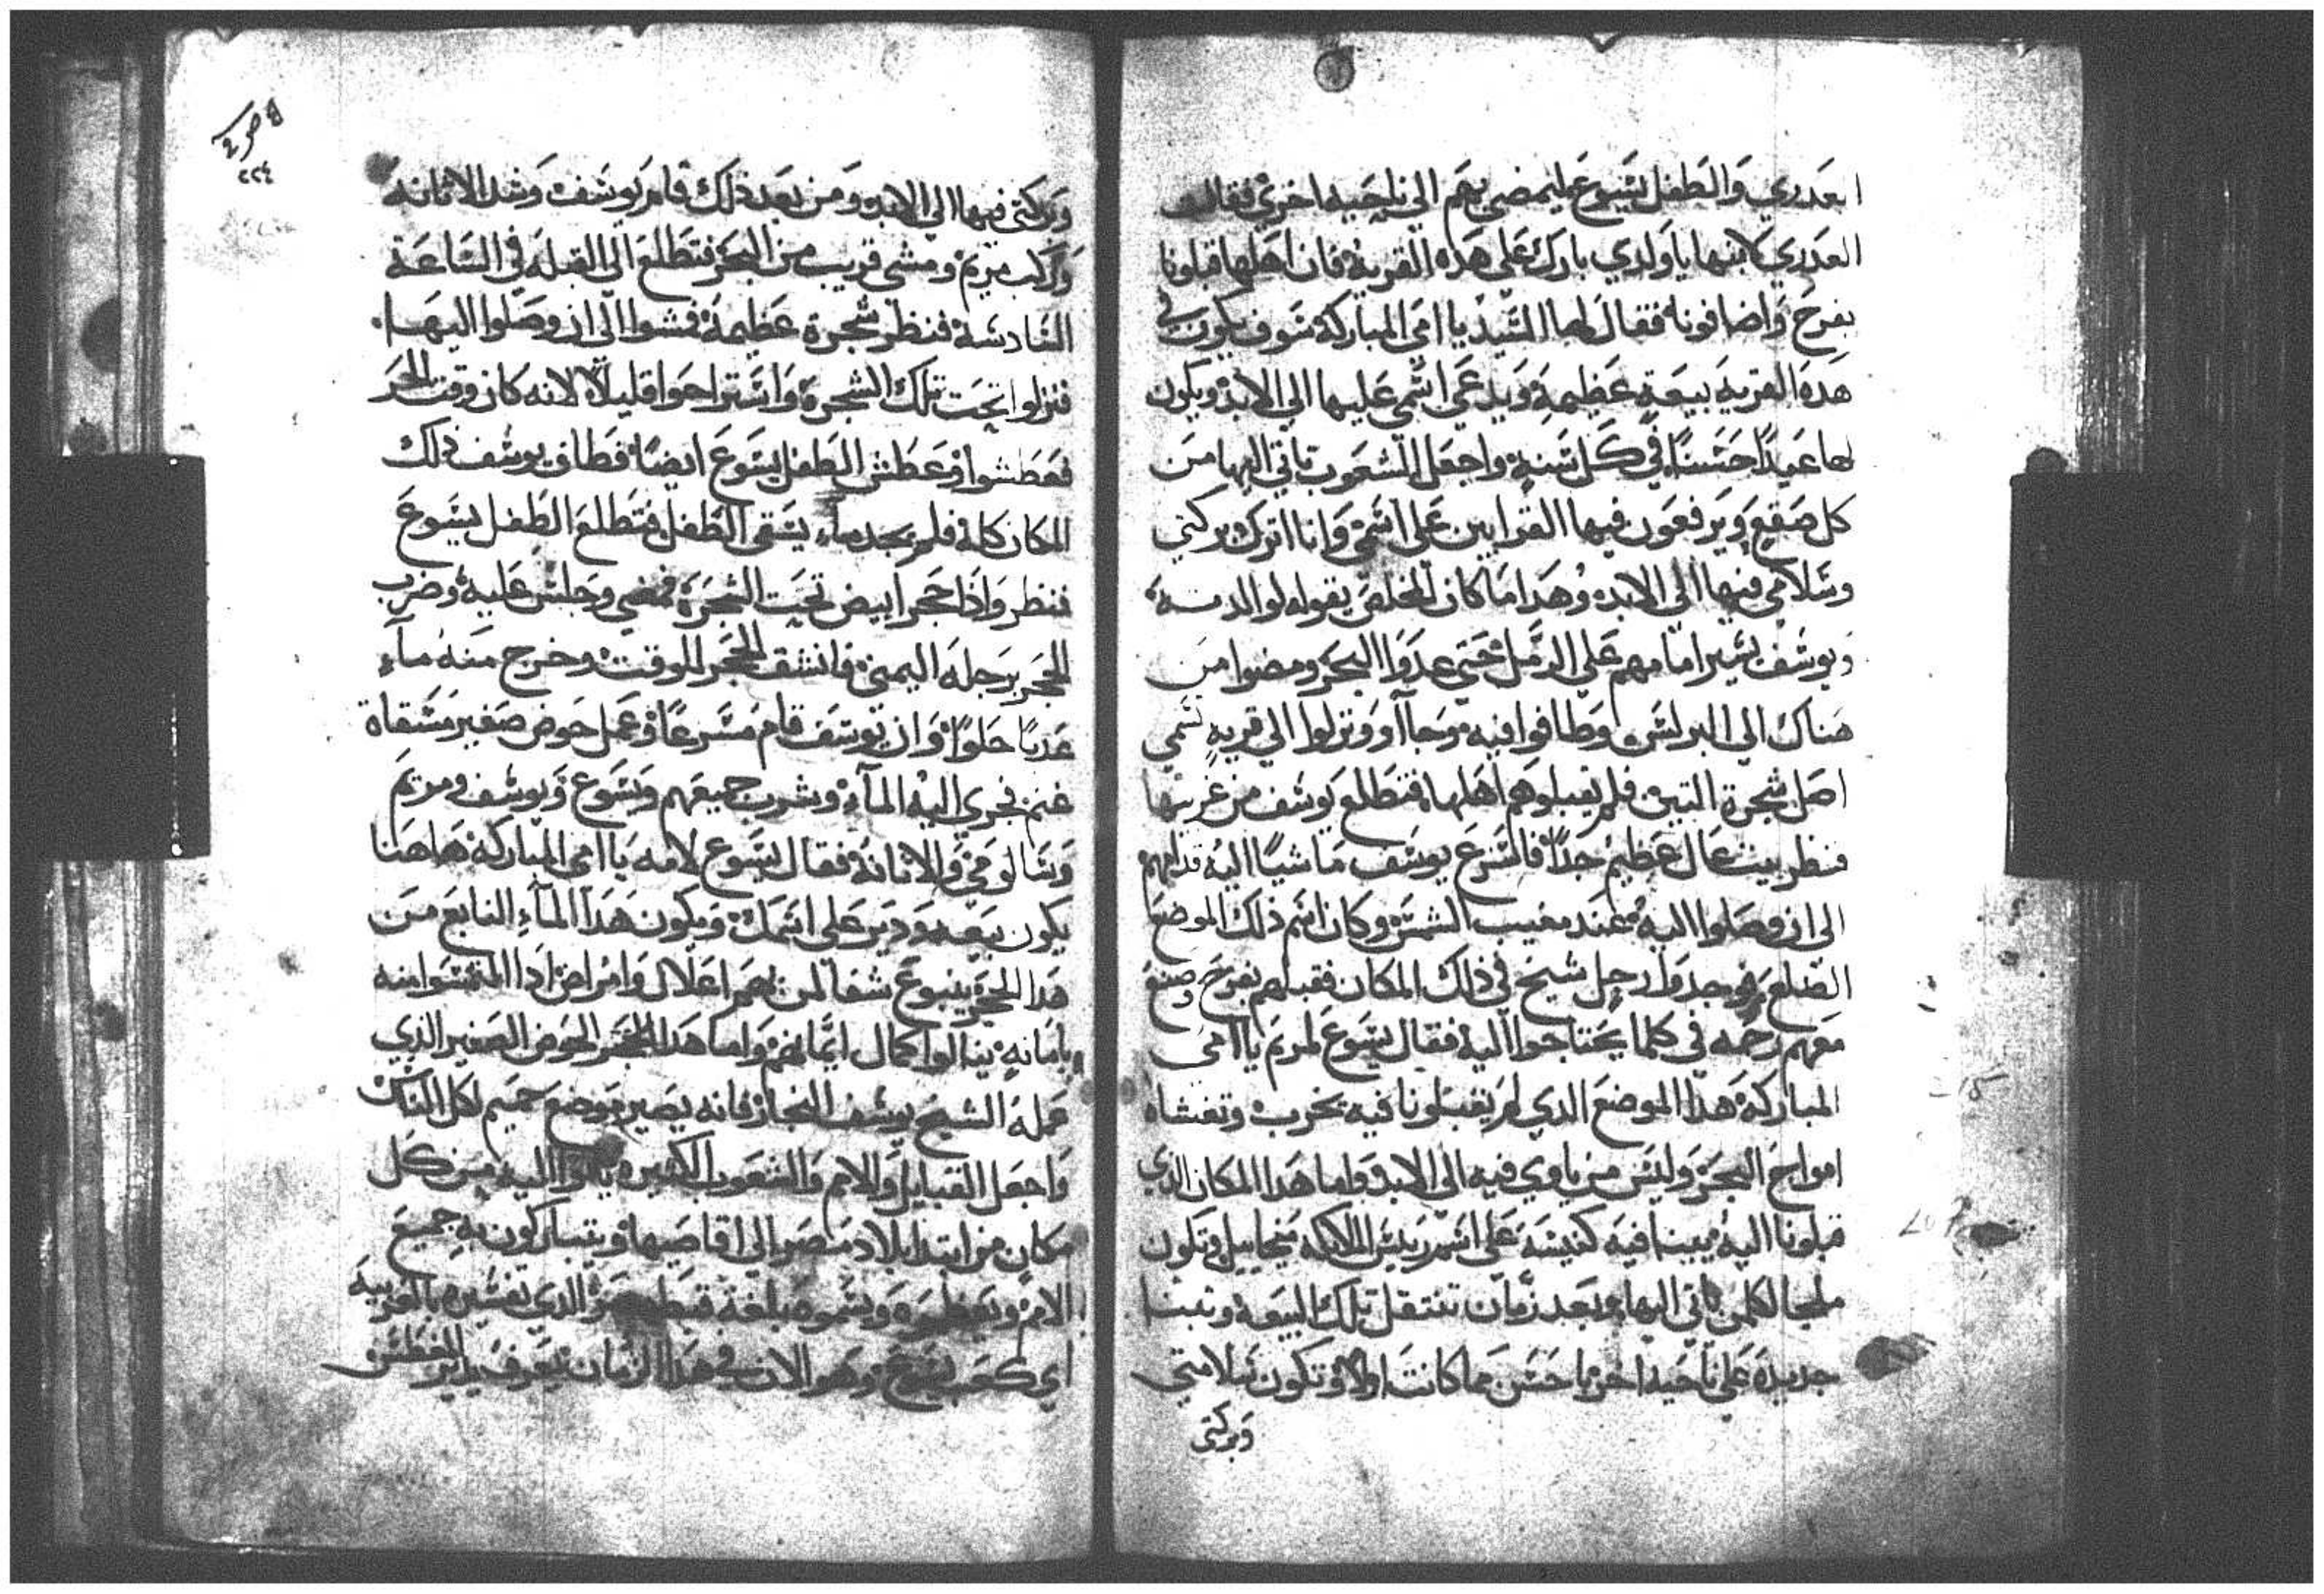 العدري والطفل يسوع ليمضي بهم الي ناحيه اخري فقالت
العدري لابنها يا ولدي بارك علي هذه القرية فان اهلها قبلونا
بفرح واضافونا فقال لها السيد يا امي المباركة سوف يكون في
هده القريه بيعةٍ عظيمةٍ ويدعي اسمي عليها الي الابد ويكون
لها عيدًا حسنًا في كل سنةٍ واجعل الشعوب تاتي اليها من
كل صقعٍ ويرفعون فيها القرابين علي اسمي وانا اترك بركتي
وسلامي فيها الي الابد وهدا ما كان المخلص يقوله لوالدته
ويوسف يسير امامهم علي الرمل حتي عدوا البحر ومضوا من
هناك الي البرلس وطافوا فيه وجاآو ونزلوا الي قريةٍ تسمي
اصل شجرة التين فلم يقبلوهم اهلها فتطلع يوسف من غربيها
فنظر بيت عال عظيم جداً فاسرع يوسف ماشيًا اليه قدامهم
الي ان وصلوا اليه عند مغيب الشمس وكان اسم ذلك الموضع
الضلع فوجدوا رجل شيخ في ذلك المكان فقبلهم بفرح وصنع
معهم رحمه في كلما يحتاجوا اليه فقال يسوع لمريم يا امي
المباركة هدا الموضع الدي لم يقبلونا فيه يخرب وتغشاه
امواج البحر وليس من ياوي فيه الي الابد واما هدا المكان الدي
قبلونا اليه يبنا فيه كنيسة علي اسم رييس الملايكه ميخاييل وتكون
ملجا لكلمن ياتي اليها وبعد زمان تنتقل تلك البيعة وتبنا
جديدة علي ناحيه اخري احسن مما كانت اولا وتكون سلامتي
وبركتي
ﻫ ص 2
٢٢٤
وبركتي فيها الي الابد ومن بعد ذلك قام يوسف وشد الاتانه
وركب مريم ومشي قريب من البحر فتطلع الي القبله في الساعة
السادسة فنظر شجرة عظيمة فمشوا الي ان وصلوا اليها
فنزلوا تحت تلك الشجرة واستراحوا قليلاً لانه كان وقت الحر
فعطشوا وعطش الطفل يسوع ايضًا فطاف يوسف ذلك
المكان كله فلم يجد ماء يسقي الطفل فتطلع الطفل يسوع
فنظر واذا حجر ابيض تحت الشجرة فمضي وجلس عليه وضرب
الحجر برجله اليمني فانشق الحجر للوقت وخرج منه ماءٍ
عدبًا حلوًا وان يوسف قام مسرعًا وعمل حوض صغير مسقاة
غنم فجري اليه الماء وشرب جميعهم ويسوع ويوسف ومريم
وسالومي والاتانة فقال يسوع لامه يا امي المباركة ها هنا
يكون بيعه ودير علي اسمك ويكون هدا الماء النابع من
هدا الحجر ينبوع شفا لمن بهم اعلال وامراض ادا التمسوا منه
بامانةٍ ينالوا كمال ايمانهم واما هدا الحجر الحوض الصغير الذي
عمله الشيخ يوسف النجار فانه يصير موضع حميم لكل الناس
واجعل القبايل والامم والشعوب الكثيرة ياتوا اليه من كل
مكان من ابتدا بلاد مصر الي اقاصيها ويتباركون به جميع
الامم ويعظموه ويسموه بلغة قبط مصر الذي تفسيره بالعربية
اي كعب يسوع وهو الان في هدا الزمان يعرف بدير المغطس